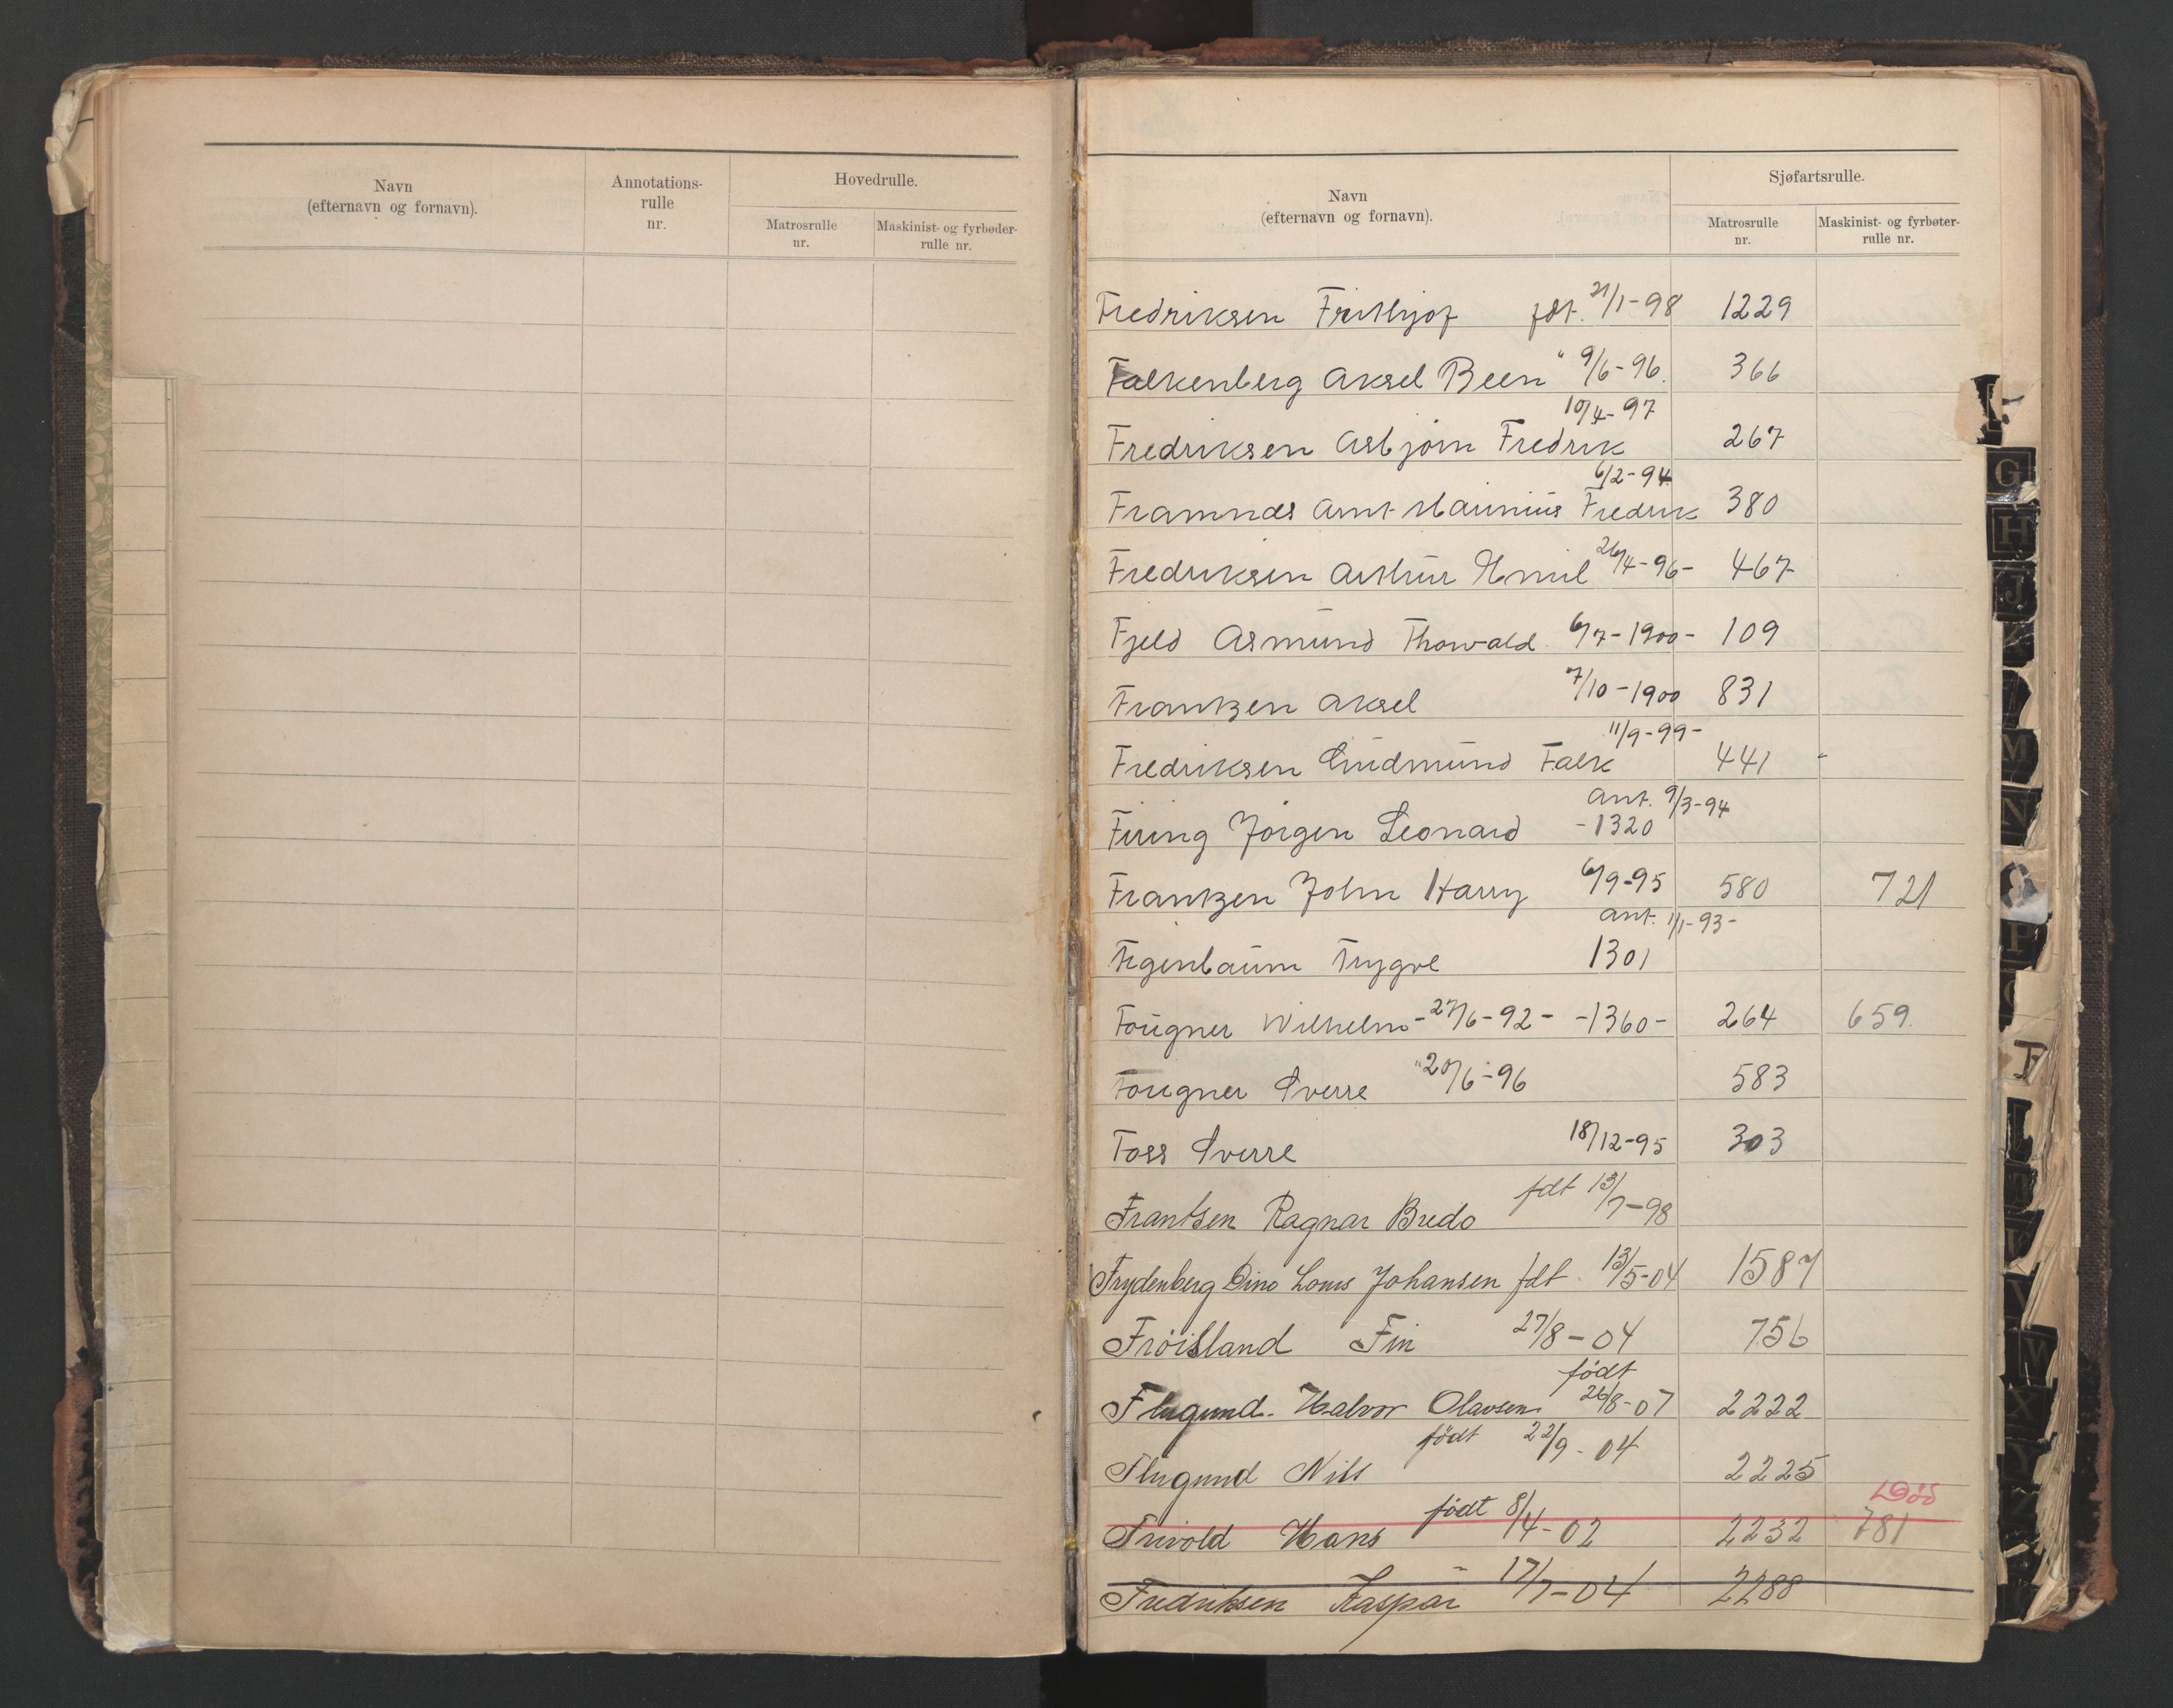 Navn
(efternavn og fornavn).
Annotations-
rulle
nr.
Hovedrulle.
Matrosrulle
nr.
Maskinist- og fyrbøder-
rulle nr.
Navn
(efternavn og fornavn).
Sjøfartsrulle.
Matrosrulle
nr.
Maskinist- og fyrbøter-
rulle nr.
Fredriksen Frithjof fdt. 21/1-98 1229
Falkenberg Aksel Been " 9/6-96. 366
10/4-97
Fredriksen Asbjørn Fredrik 267
6/2-94
Framnæs Arnt Marinius Fredrik 380
Fredriksen Arthur Emil 26/4-96- 467
Fjeld Asmund Thorvald. 6/7-1900- 109
Frantzen Aksel 7/10-1900 831
11/9-99-
Fredriksen Gudmund Falk 441
Ant. 9/3-94
Firing Jørgen Leonard -1320
Frantzen John Harry 6/9-95 580 721
Ant. 1/1-93-
Figenbaum Trygve 1301
Fougner Wilhelm -27/6-92- -1360- 264 659.
Fougner Sverre "20/6-96 583
Foss Sverre 18/12-95 303
Frantsen Ragnar Bredo fdt 13/7-98
Frydenberg Louis Johansen fdt. 13/5-04 1587
Frøisland Fin 27/8-04 756
født
Flugund. Halvor Olavsen. 26/8-07 2222
født 22/9-04
Flugund Nils 2225
Død
Trivold Hans født 8/4-02 2232 781
Fredriksen Kaspar 17/7-04 2288
G
H
J
M
N
P
T
V
W
X
Y